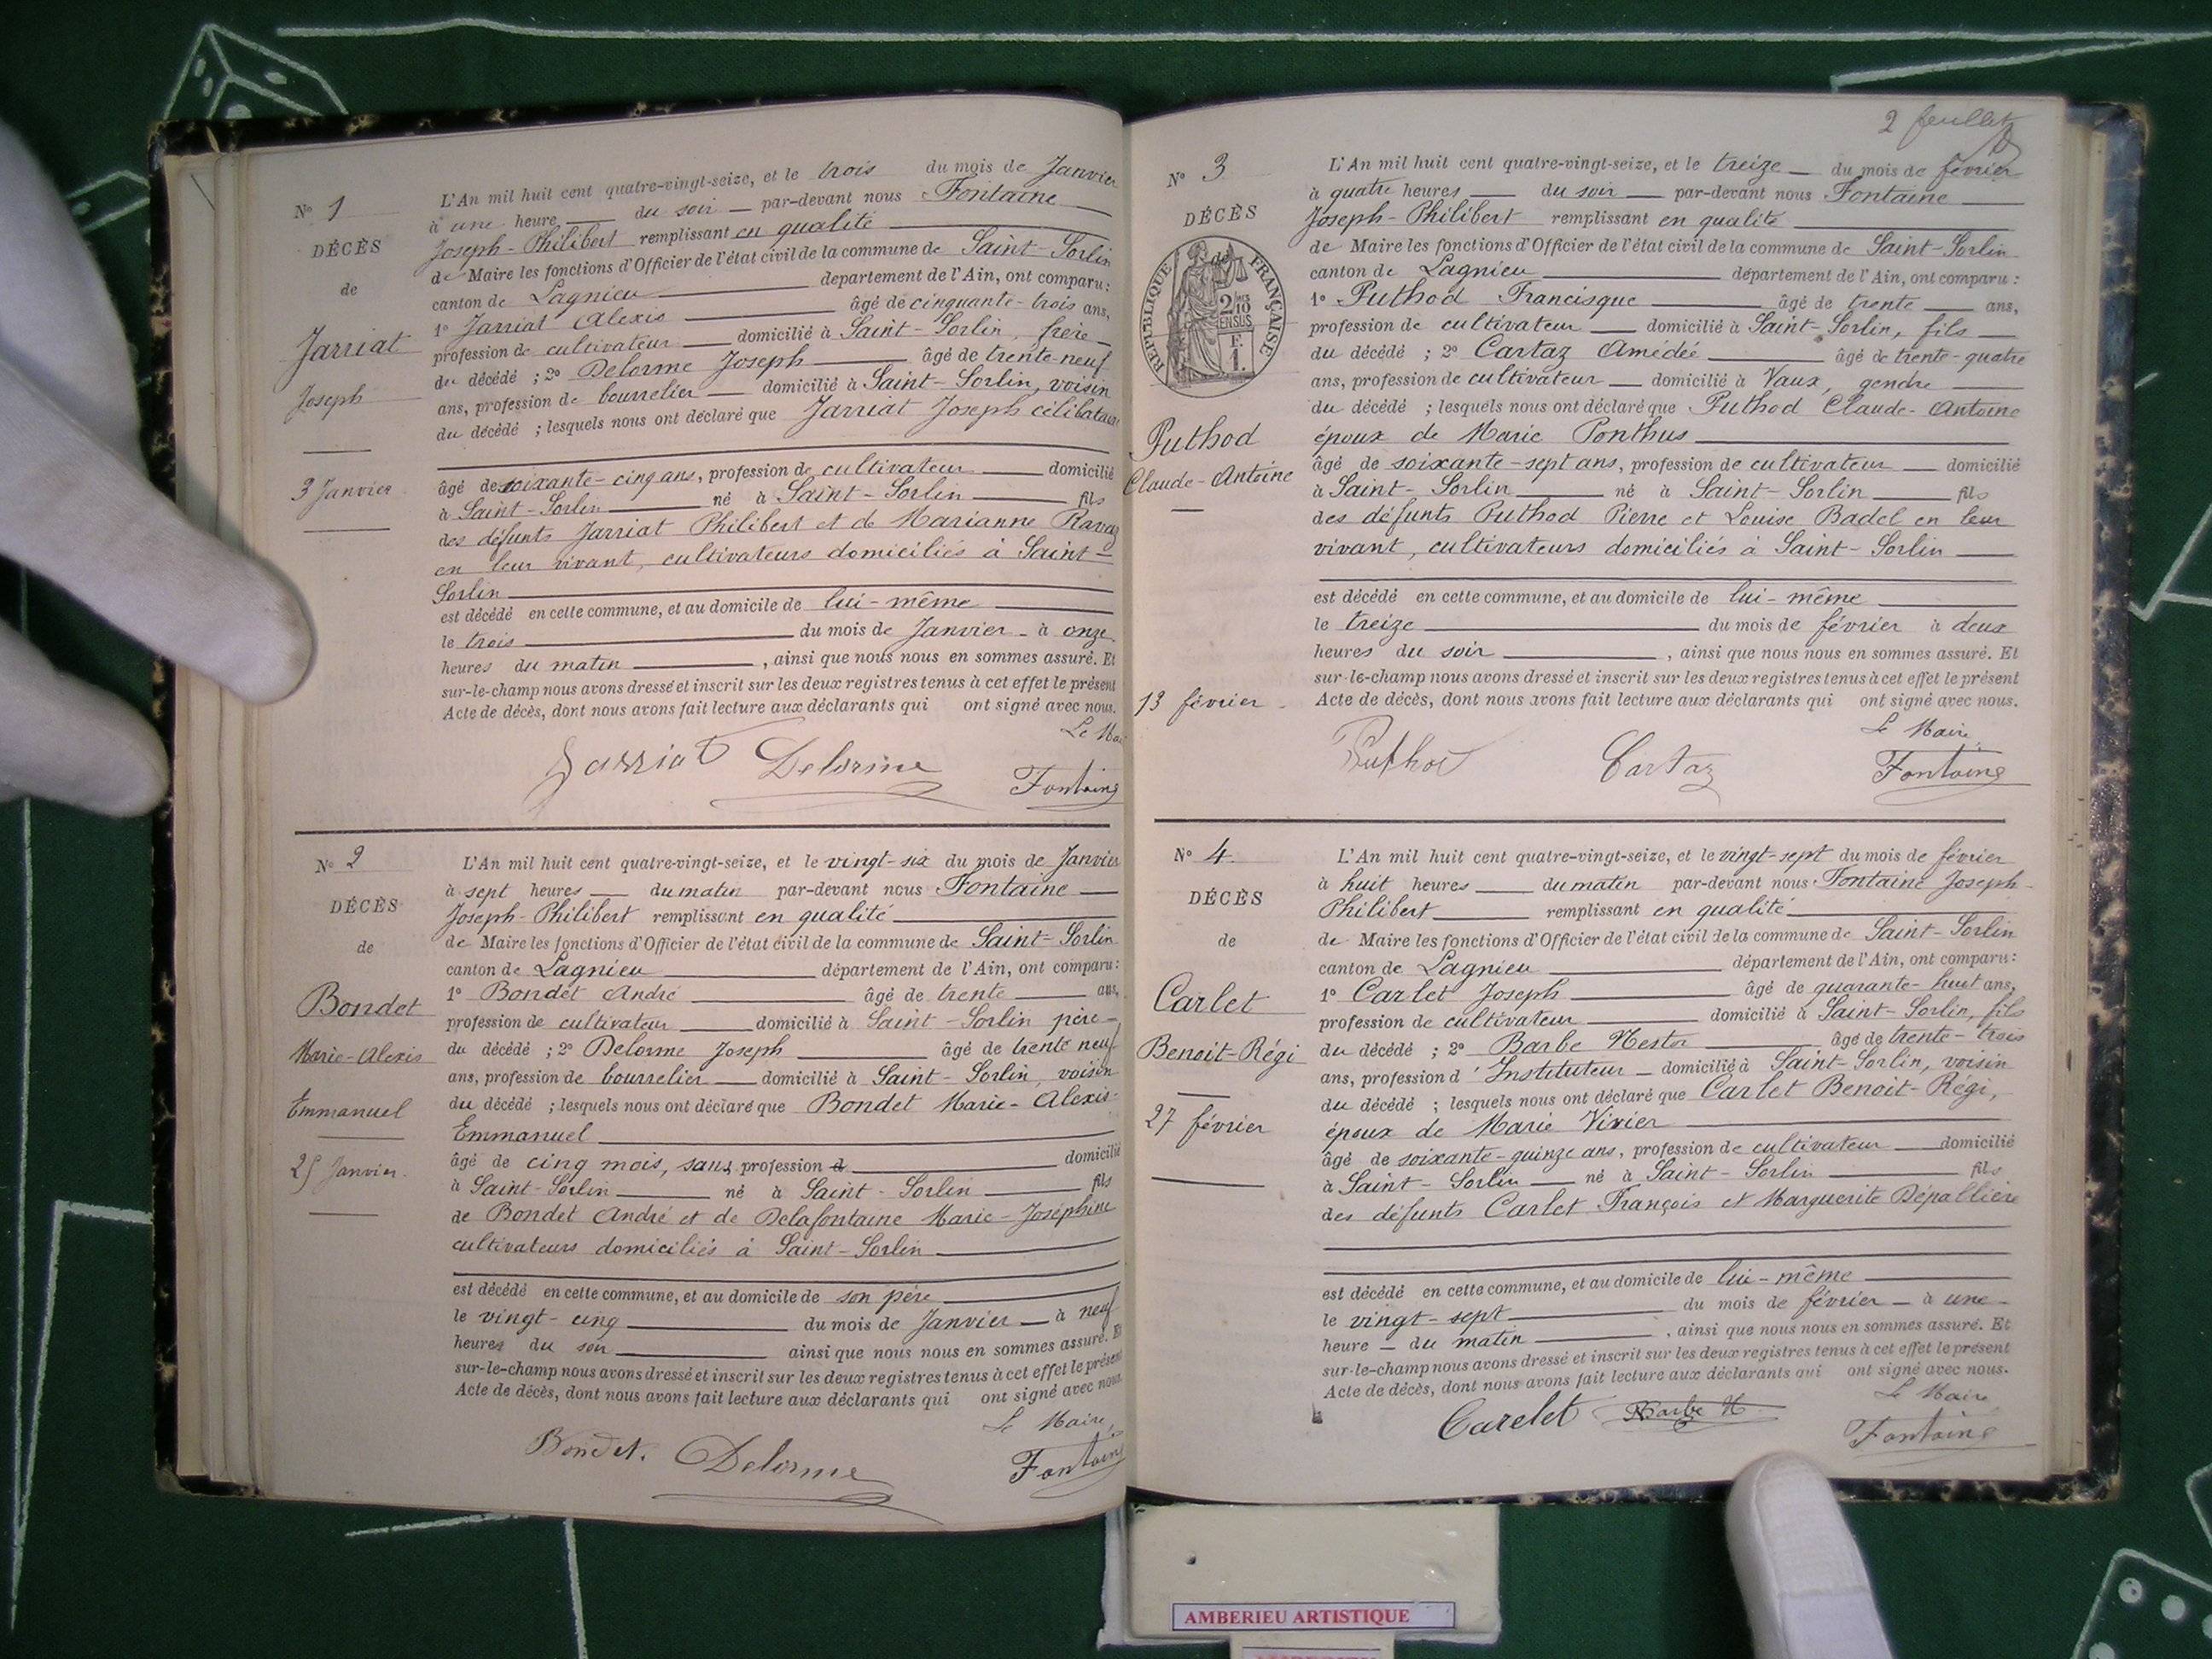 N° 1
DÉCÈS
de
Jarriat
Joseph
3 Janvier
L'An mil huit cent quatre-vingt-seize, et le trois du mois de Janvier
à une heure du soir par-devant nous Fontaine
Joseph-Philibert remplissant en qualité
de Maire les fonctions d'Officier de l'état civil de la commune de Saint-Sorlin
canton de Lagnieu département de l'Ain, ont comparu:
1° Jarriat Alexis âgé de cinquante-trois ans,
profession de cultivateur domicilié à Saint-Sorlin, frère
du décédé ; 2° Delorme Joseph âgé de trente-neuf
ans, profession de bourrelier domicilié à Saint-Sorlin, voisin
du décédé ; lesquels nous ont déclaré que Jarriat Joseph célibataire
âgé de soixante-cinq ans, profession de cultivateur domicilié
à Saint-Sorlin né à Saint-Sorlin fils
des défunts Jarriat Philibert et de Marianne Ravaz
en leur vivant, cultivateurs domiciliés à Saint-
Sorlin
est décédé en cette commune, et au domicile de lui-même
le trois du mois de Janvier à onze
heures du matin , ainsi que nous nous en sommes assuré. Et
sur-le-champ nous avons dressé et inscrit sur les deux registres tenus à cet effet le présent
Acte de décès, dont nous avons fait lecture aux déclarants qui ont signé avec nous.
Le Mai
Jarriat Delorme Fontaine
N° 2
DÉCÈS
de
Bondet
Marie-Alexis
Emmanuel
25 Janvier.
L'An mil huit cent quatre-vingt-seize, et le vingt-six du mois de Janvier
à sept heures du matin par-devant nous Fontaine
Joseph-Philibert remplissant en qualité
de Maire les fonctions d'Officier de l'état civil de la commune de Saint-Sorlin
canton de Lagnieu département de l'Ain, ont comparu:
1° Bondet André âgé de trente ans,
profession de cultivateur domicilié à Saint-Sorlin père
du décédé ; 2° Delorme Joseph âgé de trente neuf
ans, profession de bourrelier domicilié à Saint-Sorlin, voisin
du décédé ; lesquels nous ont déclaré que Bondet Marie-Alexis-
Emmanuel
âgé de cinq mois, sans profession d domicilié
à Saint-Sorlin né à Saint-Sorlin fils
de Bondet André et de Delafontaine Marie-Joséphine
cultivateurs domiciliés à Saint-Sorlin
est décédé en cette commune, et au domicile de son père
le vingt-cinq du mois de Janvier à neuf
heures du soir ainsi que nous nous en sommes assuré. Et
sur-le-champ nous avons dressé et inscrit sur les deux registres tenus à cet effet le présent
Acte de décès, dont nous avons fait lecture aux déclarants qui ont signé avec nous.
Le Maire,
Bondet. Delorme Fontaine
2 feuillet
N° 3
DÉCÈS
de
RÉPUBLIQUE FRANÇAISE
2/10 EN SUS
Puthod
Claude-Antoine
13 février
L'An mil huit cent quatre-vingt-seize, et le treize du mois de février
à quatre heures du soir par-devant nous Fontaine
Joseph-Philibert remplissant en qualité
de Maire les fonctions d'Officier de l'état civil de la commune de Saint-Sorlin
canton de Lagnieu département de l'Ain, ont comparu:
1° Puthod Francisque âgé de trente ans,
profession de cultivateur domicilié à Saint-Sorlin, fils
du décédé ; 2° Cartaz Amédée âgé de trente-quatre
ans, profession de cultivateur domicilié à Vaux, gendre
du décédé ; lesquels nous ont déclaré que Puthod Claude-Antoine
époux de Marie Ponthus
âgé de soixante-sept ans, profession de cultivateur domicilié
à Saint-Sorlin né à Saint-Sorlin fils
des défunts Puthod Pierre et Louise Badel en leur
vivant, cultivateurs domiciliés à Saint-Sorlin
est décédé en cette commune, et au domicile de lui-même
le treize du mois de février à deux
heures du soir , ainsi que nous nous en sommes assuré. Et
sur-le-champ nous avons dressé et inscrit sur les deux registres tenus à cet effet le présent
Acte de décès, dont nous avons fait lecture aux déclarants qui ont signé avec nous.
Le Maire,
Puthod Cartaz Fontaine
N° 4
DÉCÈS
de
Carlet
Benoit-Régi
27 février
L'An mil huit cent quatre-vingt-seize, et le vingt-sept du mois de février
à huit heures du matin par-devant nous Fontaine Joseph-
Philibert remplissant en qualité
de Maire les fonctions d'Officier de l'état civil de la commune de Saint-Sorlin
canton de Lagnieu département de l'Ain, ont comparu:
1° Carlet Joseph âgé de quarante-huit ans,
profession de cultivateur domicilié à Saint-Sorlin, fils
du décédé ; 2° Barbe Nestor âgé de trente-trois
ans, profession d'Instituteur domicilié à Saint-Sorlin, voisin
du décédé ; lesquels nous ont déclaré que Carlet Benoit-Régi,
époux de Marie Vivier
âgé de soixante-quinze ans, profession de cultivateur domicilié
à Saint-Sorlin né à Saint-Sorlin fils
des défunts Carlet François et Marguerite Dépallière
est décédé en cette commune, et au domicile de lui-même
le vingt-sept du mois de février à une
heure du matin , ainsi que nous nous en sommes assuré. Et
sur-le-champ nous avons dressé et inscrit sur les deux registres tenus à cet effet le présent
Acte de décès, dont nous avons fait lecture aux déclarants qui ont signé avec nous.
Le Maire
Carelet Barbe N Fontaine
AMBERIEU ARTISTIQUE